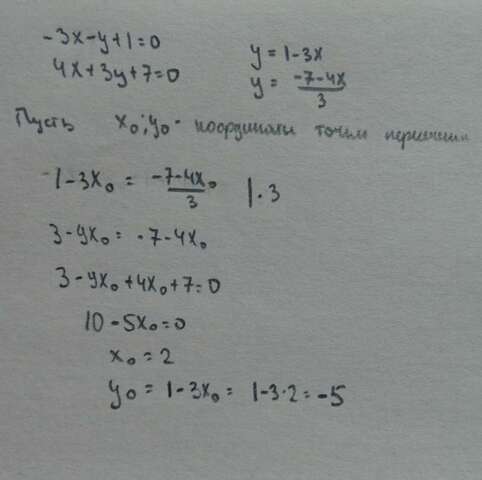 -3x-y+1=0
4x+3y+7=0
y=1-3x
y=\frac{-7-4x}{3}
Пусть x₀;y₀- координаты точки пересечения
1-3x₀=\frac{-7-4x₀}{3} |·3
3-9x₀=-7-4x₀
3-9x₀+4x₀+7=0
10-5x₀=0
x₀=2
y₀=1-3x₀=1-3·2=-5